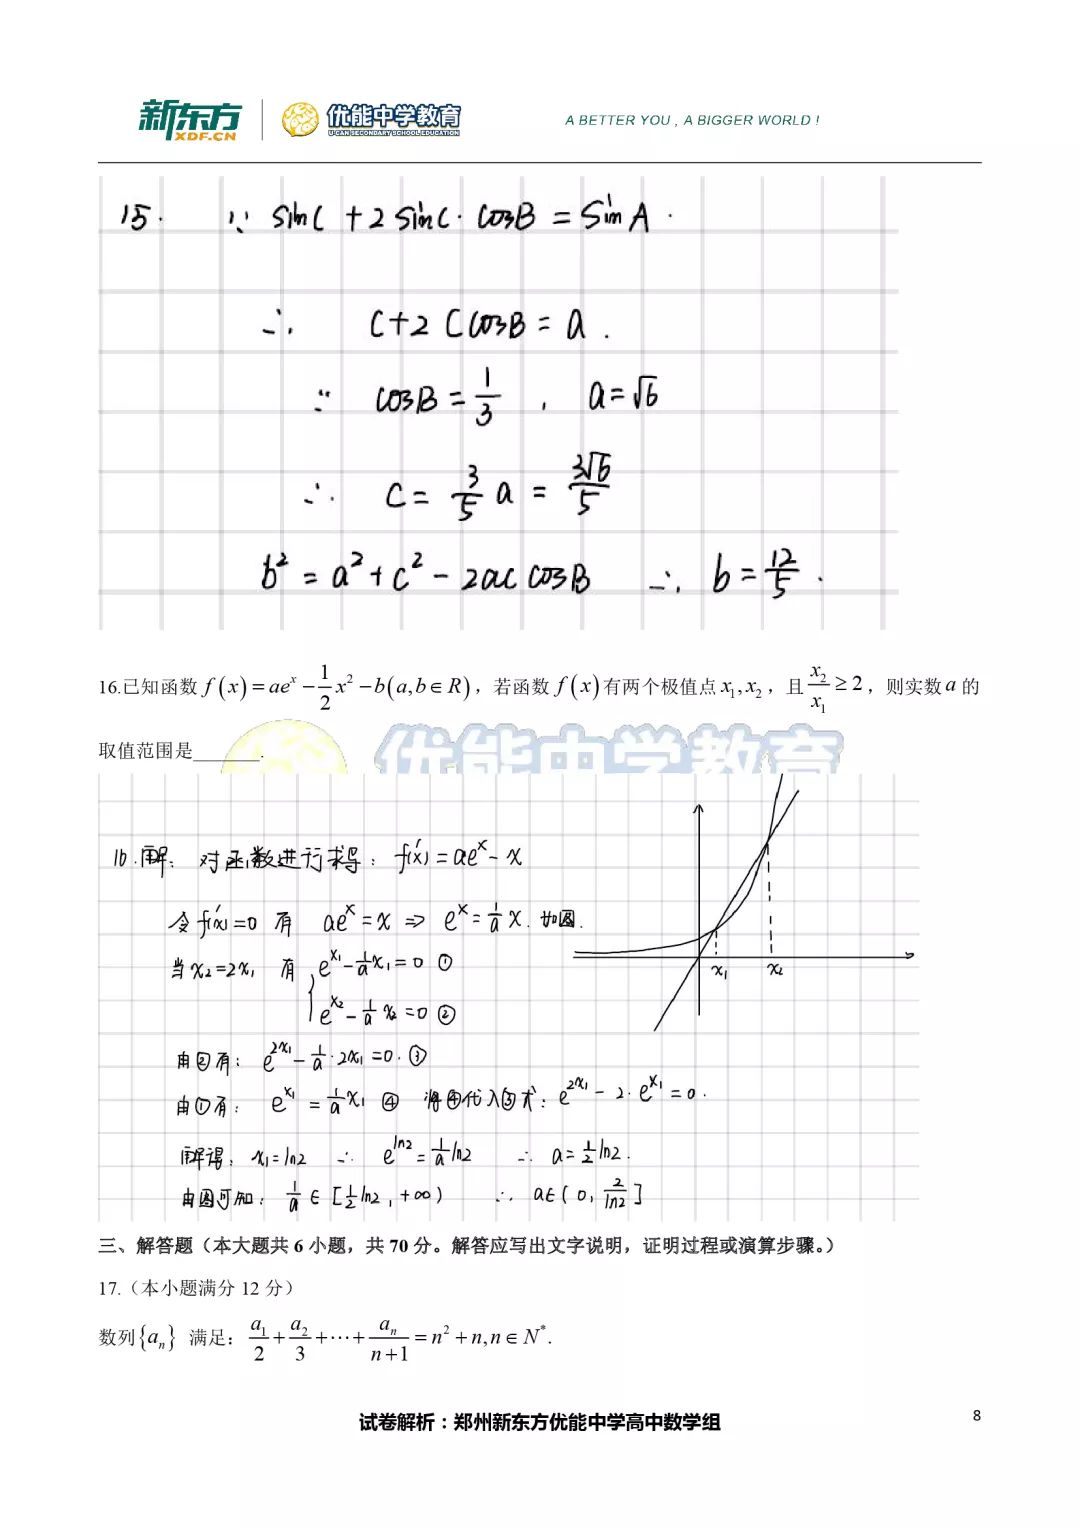 新东方
XDF.CN
优能中学教育
U-CAN SECONDARY SCHOOL EDUCATION
A BETTER YOU , A BIGGER WORLD !
15. ∵ sinC + 2sinC·cosB = sinA.
∴ c+2ccosB = a.
∵ cosB = 1/3 , a=√6
∴ c = 3/5 a = 3√6/5
b² = a² + c² - 2accosB ∴ b = 12/5.
16.已知函数 f(x) = ae^x − 1/2 x² − b(a,b∈R)，若函数 f(x)有两个极值点 x₁,x₂，且 x₂/x₁ ≥ 2，则实数a 的
取值范围是_______.
优能中学教育
16.解：对函数进行求导：f'(x) = ae^x - x
令f'(x)=0 有 ae^x = x ⇒ e^x = 1/a x. 如图.
当x₂=2x₁ 有 { e^x₁ - 1/a x₁ = 0 ①
e^x₂ - 1/a x₂ = 0 ②
x₁ x₂
由②有: e^2x₁ - 1/a·2x₁ = 0. ③
由①有: e^x₁ = 1/a x₁ ④ 将④代入③式: e^2x₁ - 2·e^x₁ = 0.
解得: x₁=ln2 ∴ e^ln2 = 1/a ln2 ∴ a = 1/2 ln2.
由图可知: 1/a ∈ [1/2 ln2, +∞) ∴ a∈(0, 2/ln2]
三、解答题（本大题共 6 小题，共 70 分。解答应写出文字说明，证明过程或演算步骤。）
17.（本小题满分 12 分）
数列{aₙ} 满足： a₁/2 + a₂/3 + ⋯ + aₙ/(n+1) = n² + n, n∈N*.
试卷解析：郑州新东方优能中学高中数学组
8